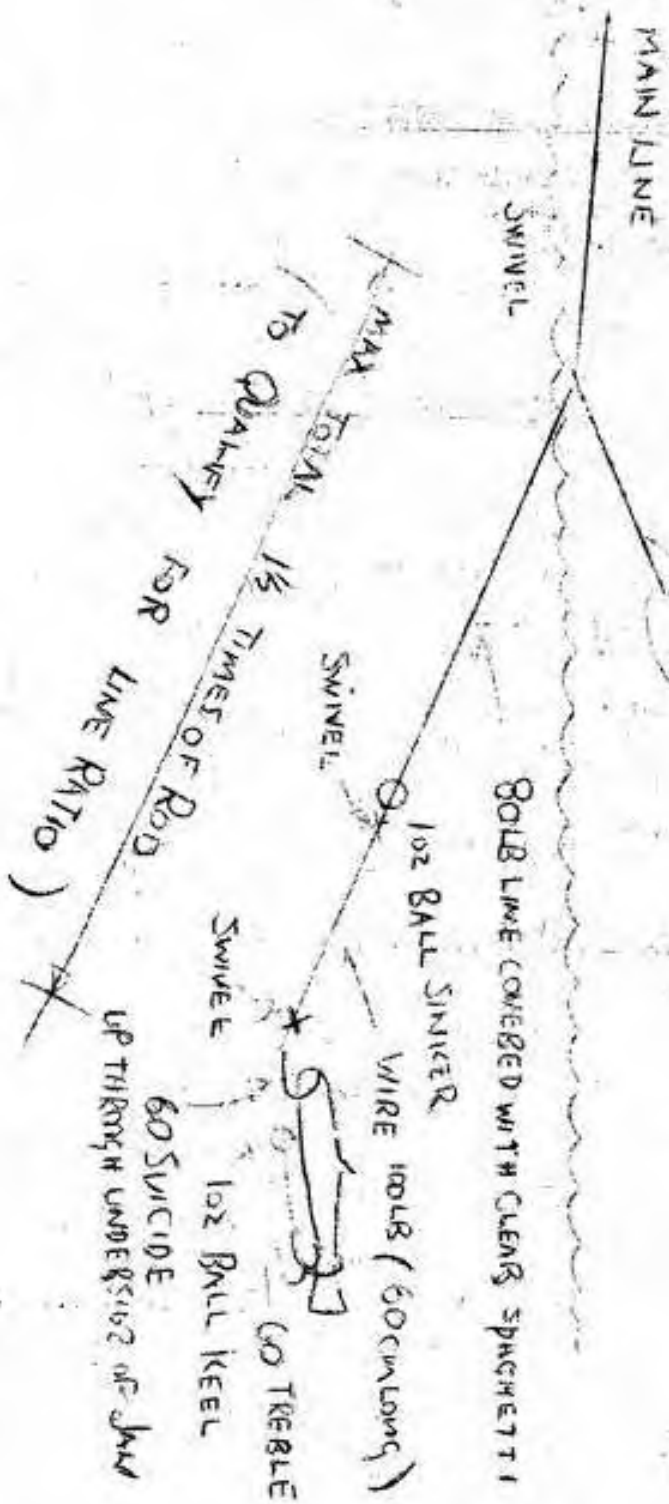 MAIN LINE
SWIVEL
80LB LINE COVERED WITH CLEAR SPAGHETTI
1OZ BALL SINKER
SWIVEL
WIRE 100LB (60CM LONG)
SWIVEL
6O TREBLE
1OZ BALL KEEL
6O SUICIDE
UP THROUGH UNDERSIDE OF JAW
MAX TOTAL 1⅓ TIMES OF ROD
TO QUALIFY FOR LINE RATIO)